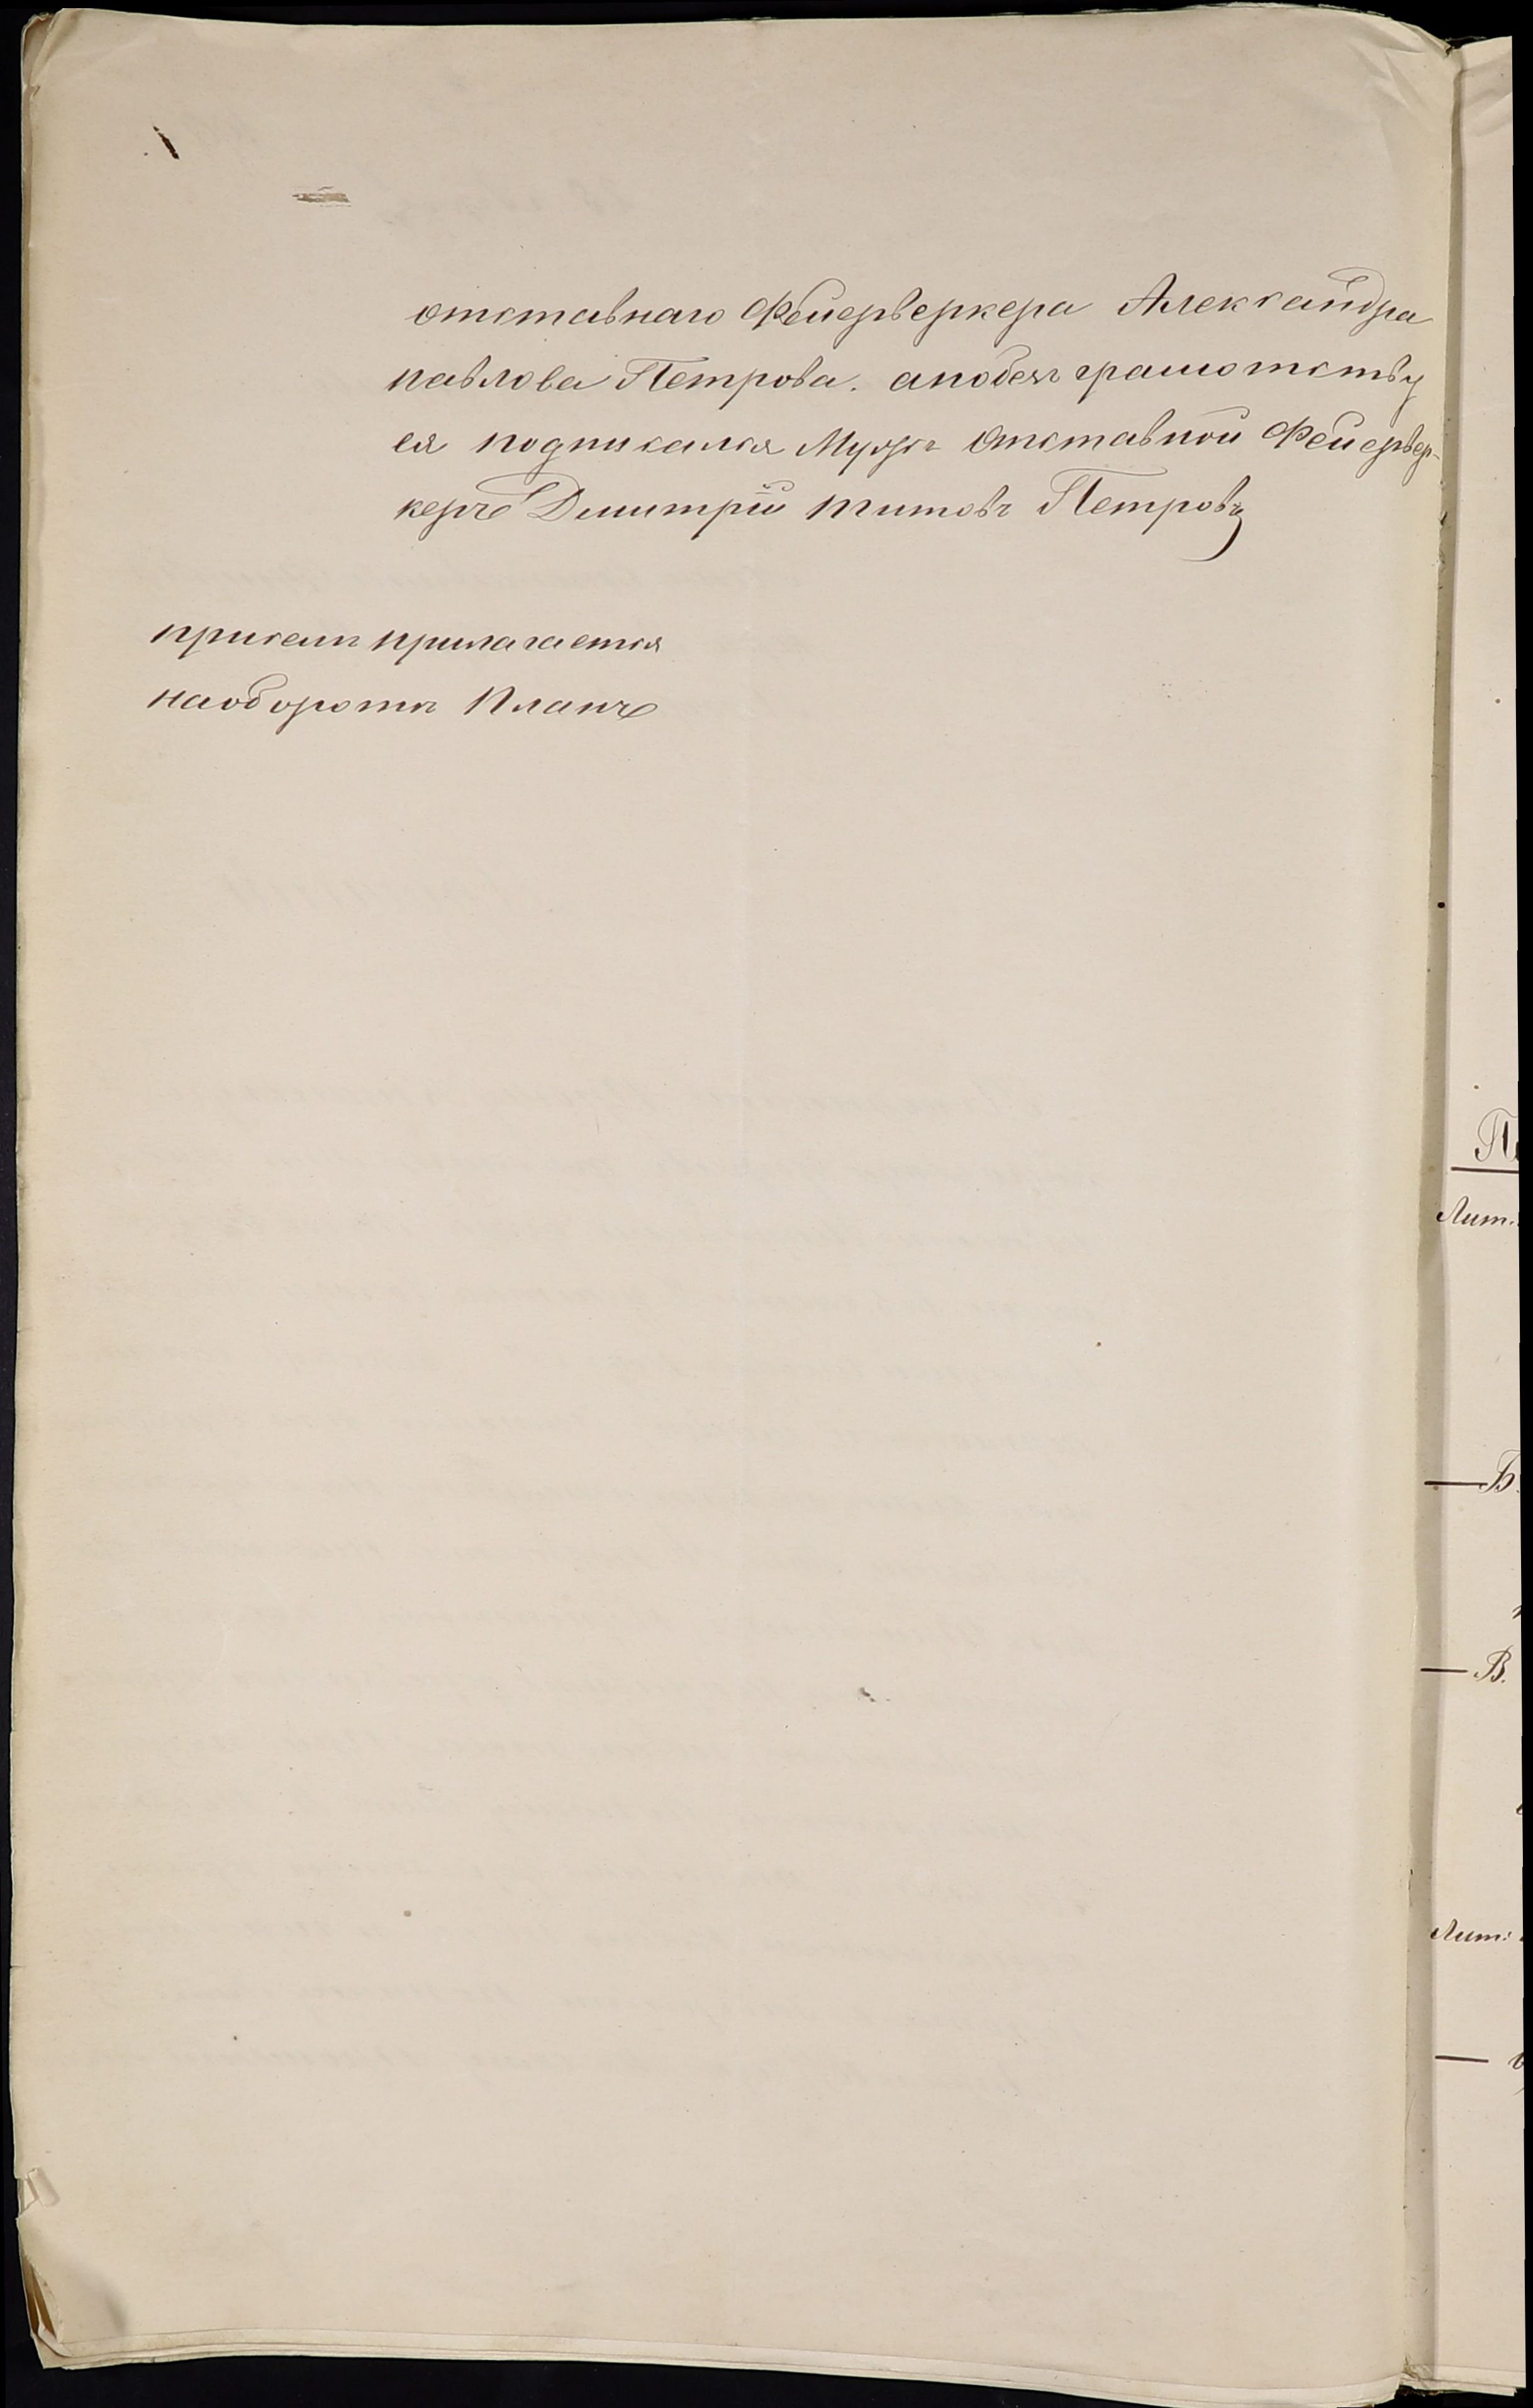 отставнаго Фейерверкера Александра
павлова Петрова. апобезъ грамотству
ея подписался Мужъ Отставной Фейервер-
керъ Димитрій титовъ Петровъ
присемъ прилагается
наоборотъ Планъ
Лит.
Б.
В.
Лит: